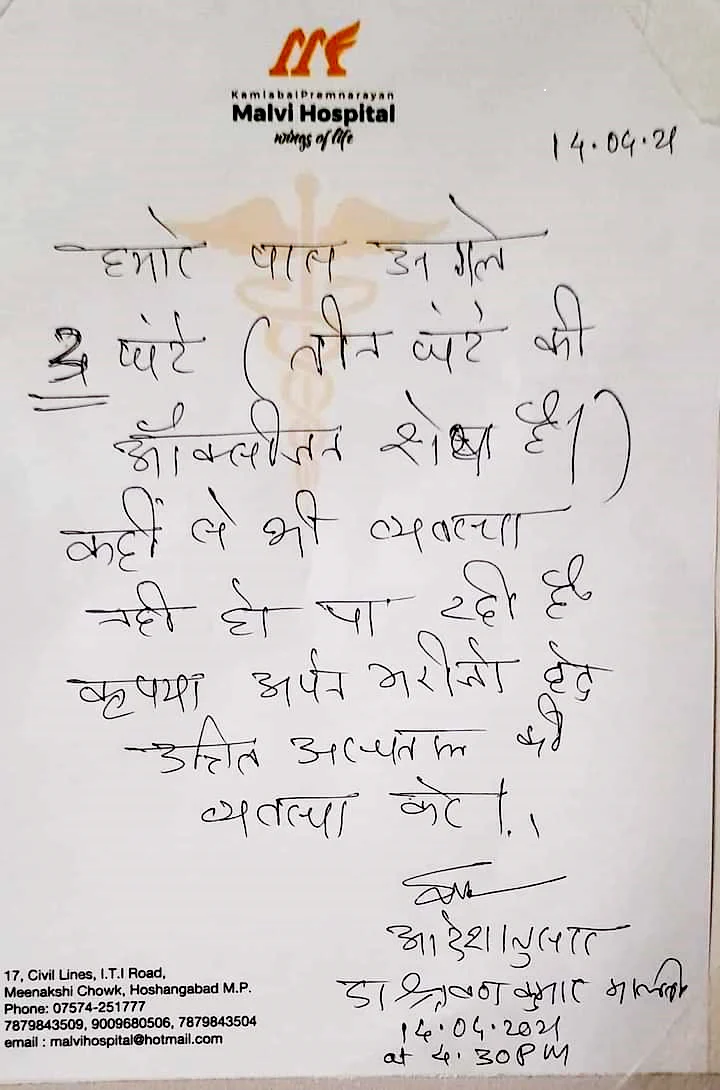 Kamlabai Premnarayan
Malvi Hospital
wings of life
14.04.21
हमारे पास अगले
3 घंटे (तीन घंटे की
ऑक्सीजन शेष है।)
कहीं से भी व्यवस्था
नही हो पा रही है
कृपया अपने मरीजो हेतु
उचित अस्पताल की
व्यवस्था करे।
आदेशानुसार
डा श्रवण कुमार मालवी
14.04.2021
at 4.30PM
17, Civil Lines, I.T.I Road,
Meenakshi Chowk, Hoshangabad M.P.
Phone: 07574-251777
7879843509, 9009680506, 7879843504
email : malvihospital@hotmail.com